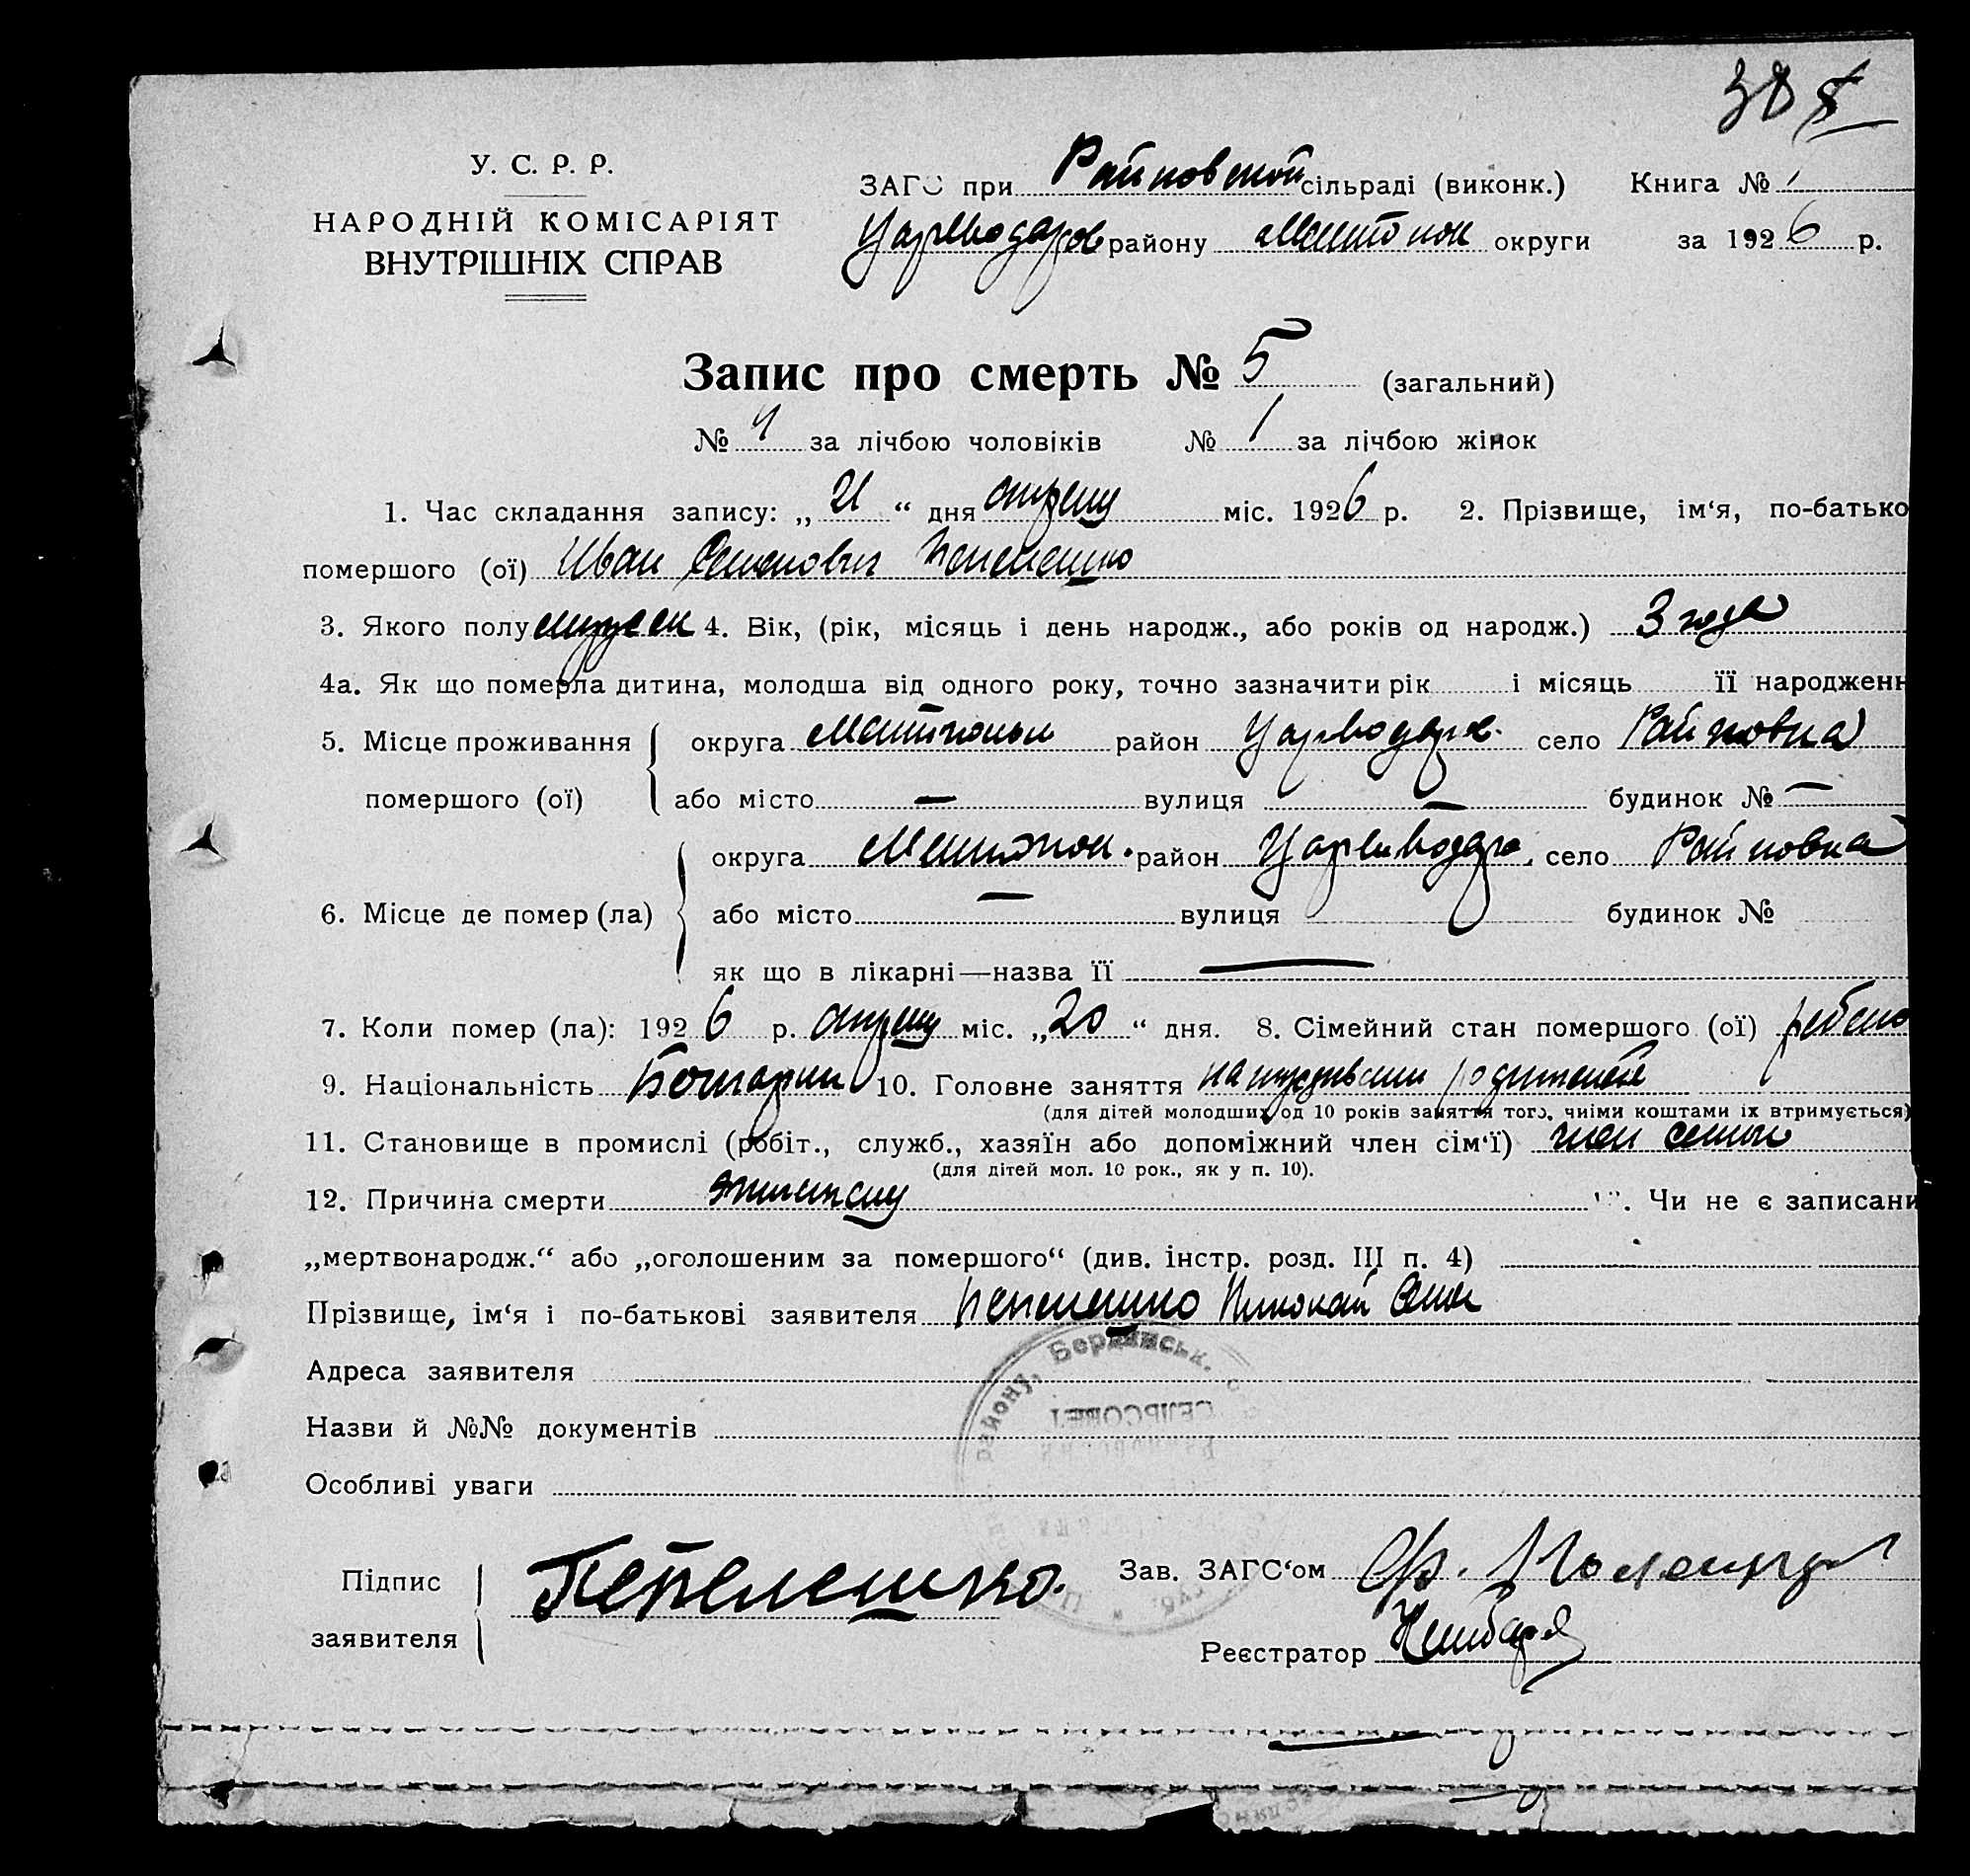 У. С. Р. Р.
НАРОДНІЙ КОМІСАРІЯТ
ВНУТРІШНІХ СПРАВ
ЗАГС при Райновской сільраді (виконк.) Книга № 1
району округи за 1926 р.
Запис про смерть № 5 (загальний)
№ 4 за лічбою чоловіків № 1 за лічбою жінок
1. Час складання запису: „ 21 “ дня апреля міс. 1926 р. 2. Прізвище, ім‘я, по-батько
помершого (ої) Иван Семенович Пепелешко
3. Якого полу мужск 4. Вік, (рік, місяць і день народж., або років од народж.) 3 года
4а. Як що померла дитина, молодша від одного року, точно зазначити рік і місяць її народженн
5. Місце проживання округа район село Райновка
помершого (ої) або місто — вулиця — будинок № —
округа район село Райновка
6. Місце де помер (ла) або місто — вулиця будинок №
як що в лікарні—назва її —
7. Коли помер (ла): 1926 р. апреля міс. „ 20 “ дня. 8. Сімейний стан помершого (ої) ребено
9. Національність Болгарин 10. Головне заняття на иждивении родителей
(для дітей молодших од 10 років заняття того, чиїми коштами їх втримується)
11. Становище в промислі (робіт., служб., хазяїн або допоміжний член сім‘ї) член семьи
(для дітей мол. 10 рок., як у п. 10).
12. Причина смерти эпилепсия . Чи не є записани
„мертвонародж.“ або „оголошеним за помершого“ (див. інстр. розд. III п. 4)
Прізвище, ім‘я і по-батькові заявителя Пепелешко Николай Семен
Адреса заявителя
Назви й №№ документів
Особливі уваги
району, Бердянськ.
СЕЛЬСОВЕТ
Підпис
заявителя
Пепелешко.
Зав. ЗАГС‘ом
Реєстратор